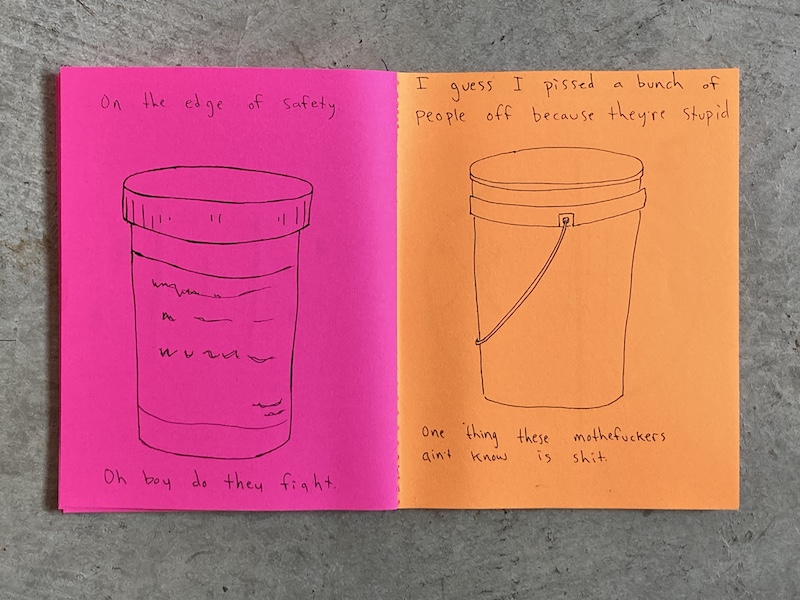 On the edge of safety.
Oh boy do they fight.
I guess I pissed a bunch of
people off because they're stupid
One thing these mothefuckers
ain't know is shit.